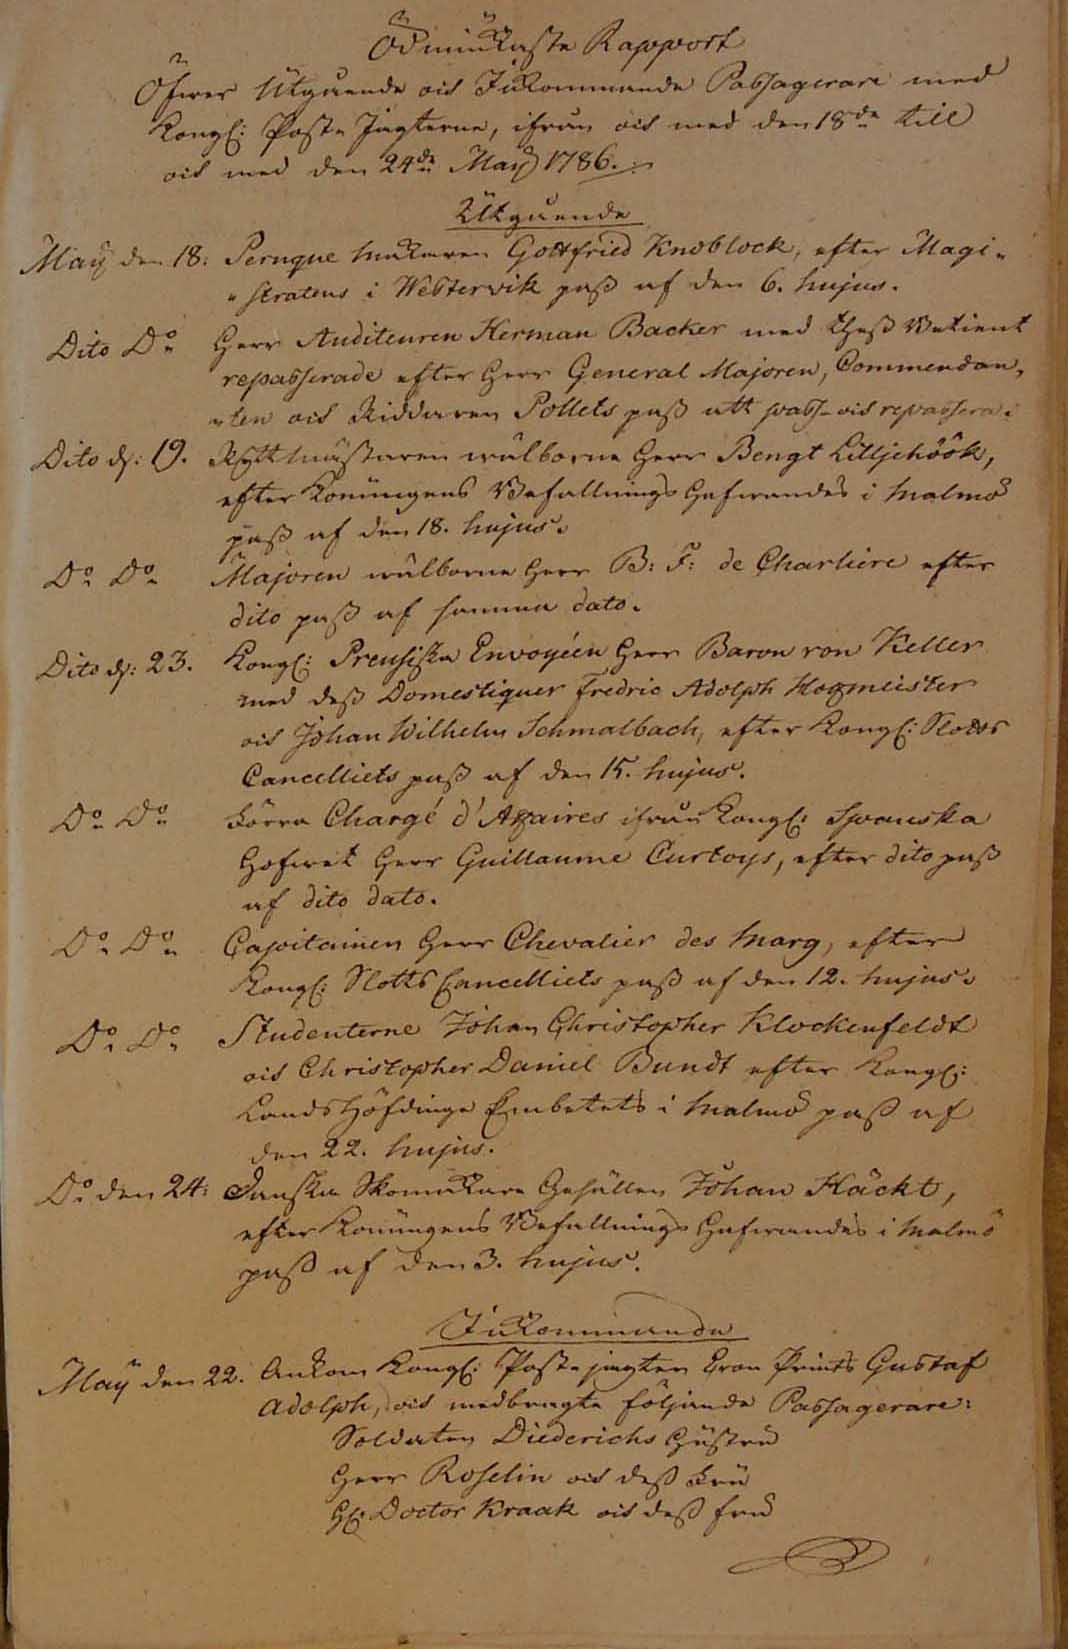 Ödmiukaste Rapport
Öfwer Utgående och Inkommande Passagerare med
Kongl: Post-Jagterne, ifrån och med den 18de till
och med den 24de Maÿ 1786.
Utgående
Maÿ den 18: Peruque makaren Gottfried Knoblock, efter Magi-
-stratens i Westervik pass af den 6. hujus.
Dito Do Herr Auditeuren Herman Backer med thess Betient
repasserade efter Herr General Majoren, Commendan-
-ten och Riddaren Pollets pass att passe och repassera.
Dito d: 19. Ryttmästaren wälborne Herr Bengt Lilljehöök,
efter Konungens Befallnings Hafwandes i Malmö
pass af den 18. hujus.
Do Do Majoren wälborne Herr B: F: de Charliere efter
dito pass af samma dato.
Dito d: 23. Kongl: Preusiska Envoyéen Herr Baron von Keller
med dess Domestiquer Fredric Adolph Hogmeister
och Johan Wilhelm Schmalbach, efter Kongl: Slotts
Cancelliets pass af den 15. hujus.
Do Do Förra Chargé d'Affaires ifrån Kongl: Spanska
Hofwet Herr Guillaume Curtoys, efter dito pass
af dito dato.
Do Do Capitainen Herr Chevalier des Marg, efter
Kongl: Slotts Cancelliets pass af den 12. hujus.
Do Do Studenterne Johan Christopher Klockenfeldt
och Christopher Daniel Bundt efter Kongl:
Landshöfdinge Embetets i Malmö pass af
den 22. hujus.
Do den 24: Danska Skomakare Gesällen Johan Häckt,
efter Konungens Befallnings Hafwandes i Malmö
pass af den 3. hujus.
Inkommande
Maÿ den 22. Ankom Kongl: Post-jagten Cron Prints Gustaf
Adolph, och medbragte följande Passagerare:
Soldaten Diederichs Hustru
Herr Roselin och dess Fru
H: Doctor Kraak och dess fru